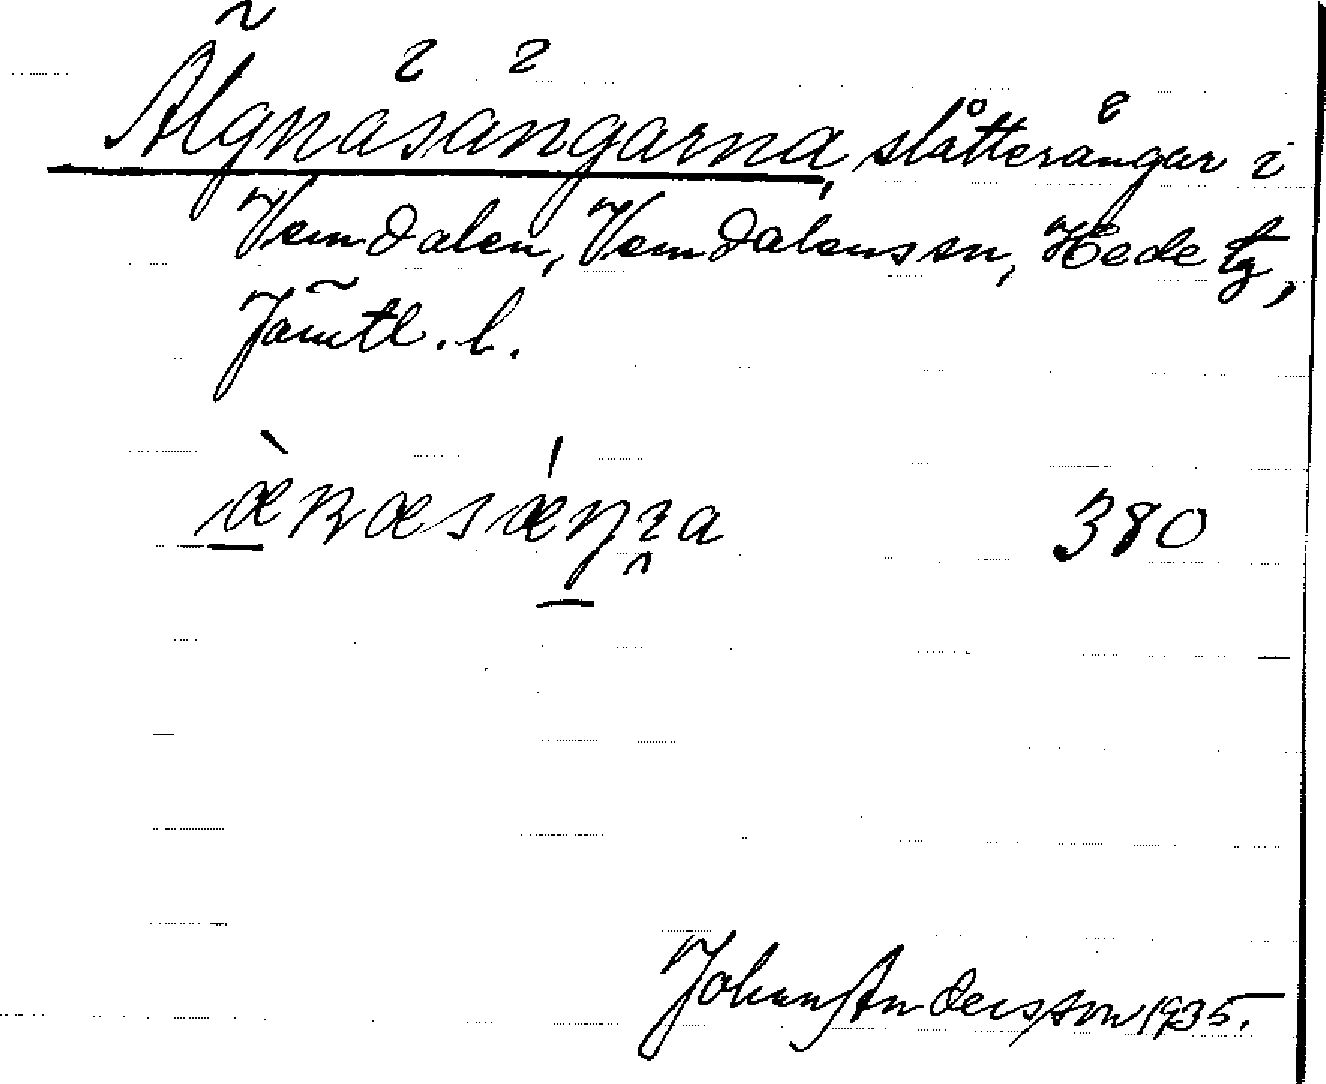 Älgnäsängarna, slåtterängar i
Vemdalen, Vemdalens sn, Hede tg,
Jämtl. l.
380
Johan Andersson 1935.